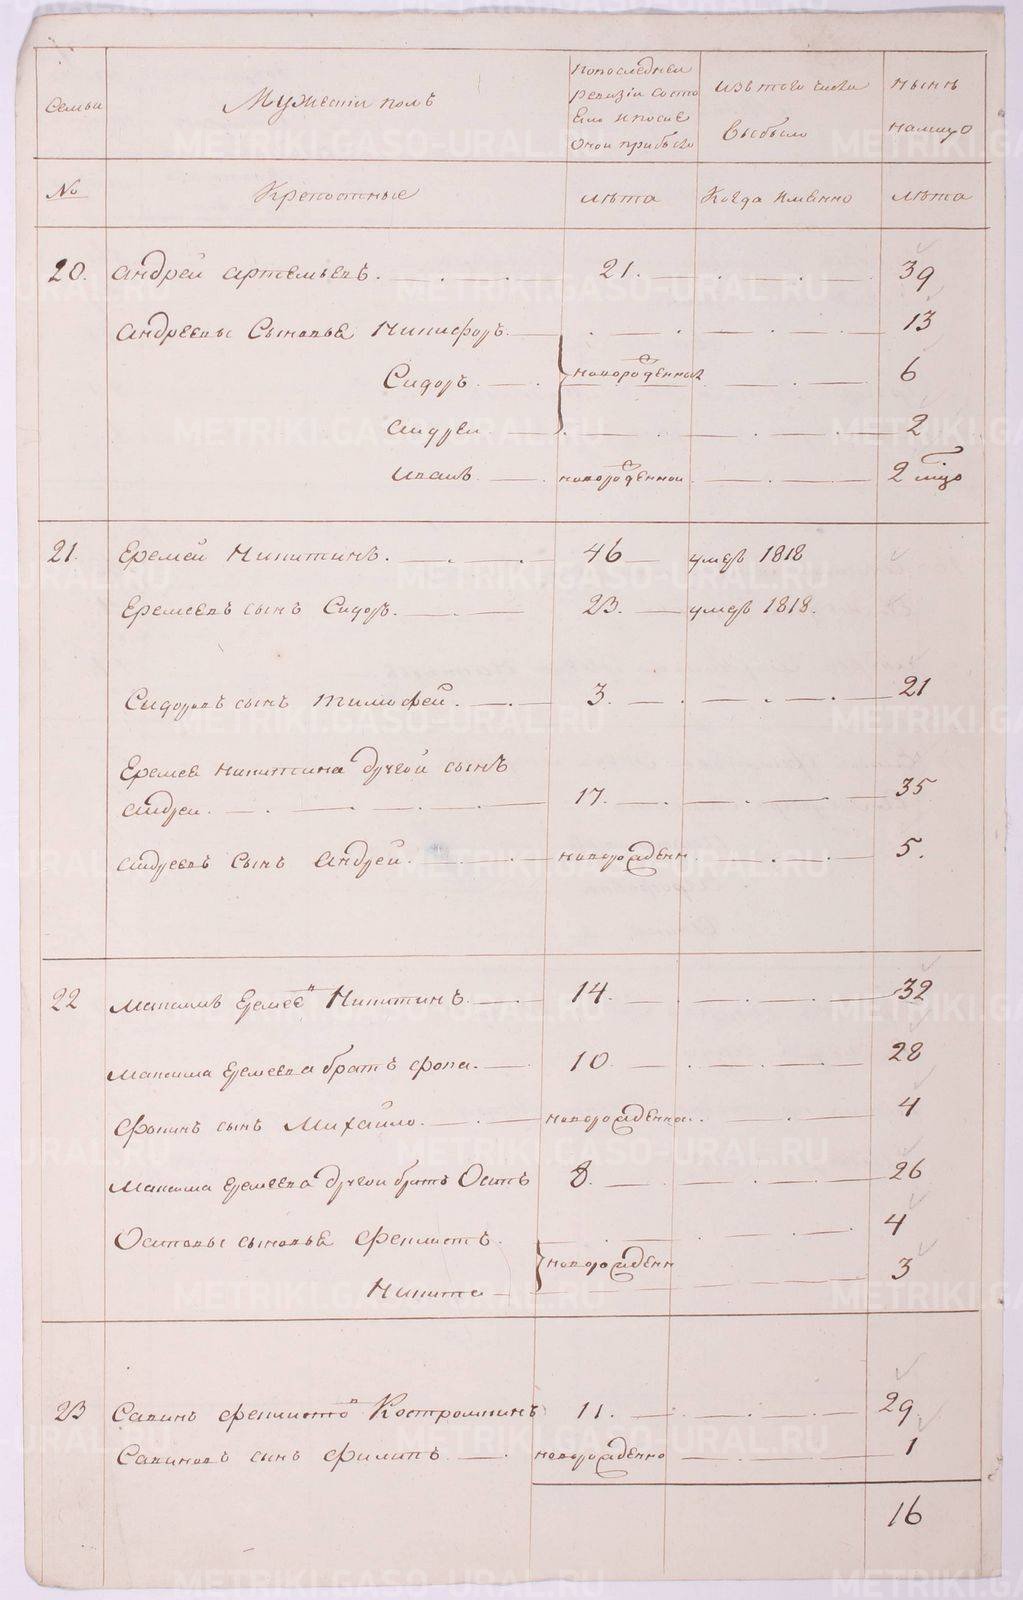 Семьи
Мужескiй полъ
По последней
ревизiи состо
яло и после
оной прибыло
Изъ того числа
выбыло
Нынѣ
налицо
№
Крепостные
лѣта
Когда имянно
лѣта
20. Андрей Артемьевъ. 21. 39
Андреевы сыновье Никифоръ 13
Сидоръ новорожденныя 6
Андрей 2
Иванъ новорожденной 2 мцо
21. Еремей Никитинъ. 46 умеръ 1818
Еремеевъ сынъ Сидоръ. 23. умеръ 1818.
Сидоровъ сынъ Тимофей. 3. 21
Еремея Никитина другой сынъ
Андрей. 17. 35
Андреевъ сынъ Андрей. новорожден 5.
22 Максимъ Еремеевъ Никитинъ. 14. 32
Максима Еремеева братъ Фока. 10 28
Фокинъ сынъ Михайло. новорожденной. 4
Максима Еремеева другой братъ Осипъ 8. 26
Осиповы сыновье Феклистъ. 4
новорожден
Никита 3
23 Савинъ Феклистовъ Костроминъ 11. 29
Савиновъ сынъ Филипъ. новорожденно 1
16
METRIKI.GASO-URAL.RU